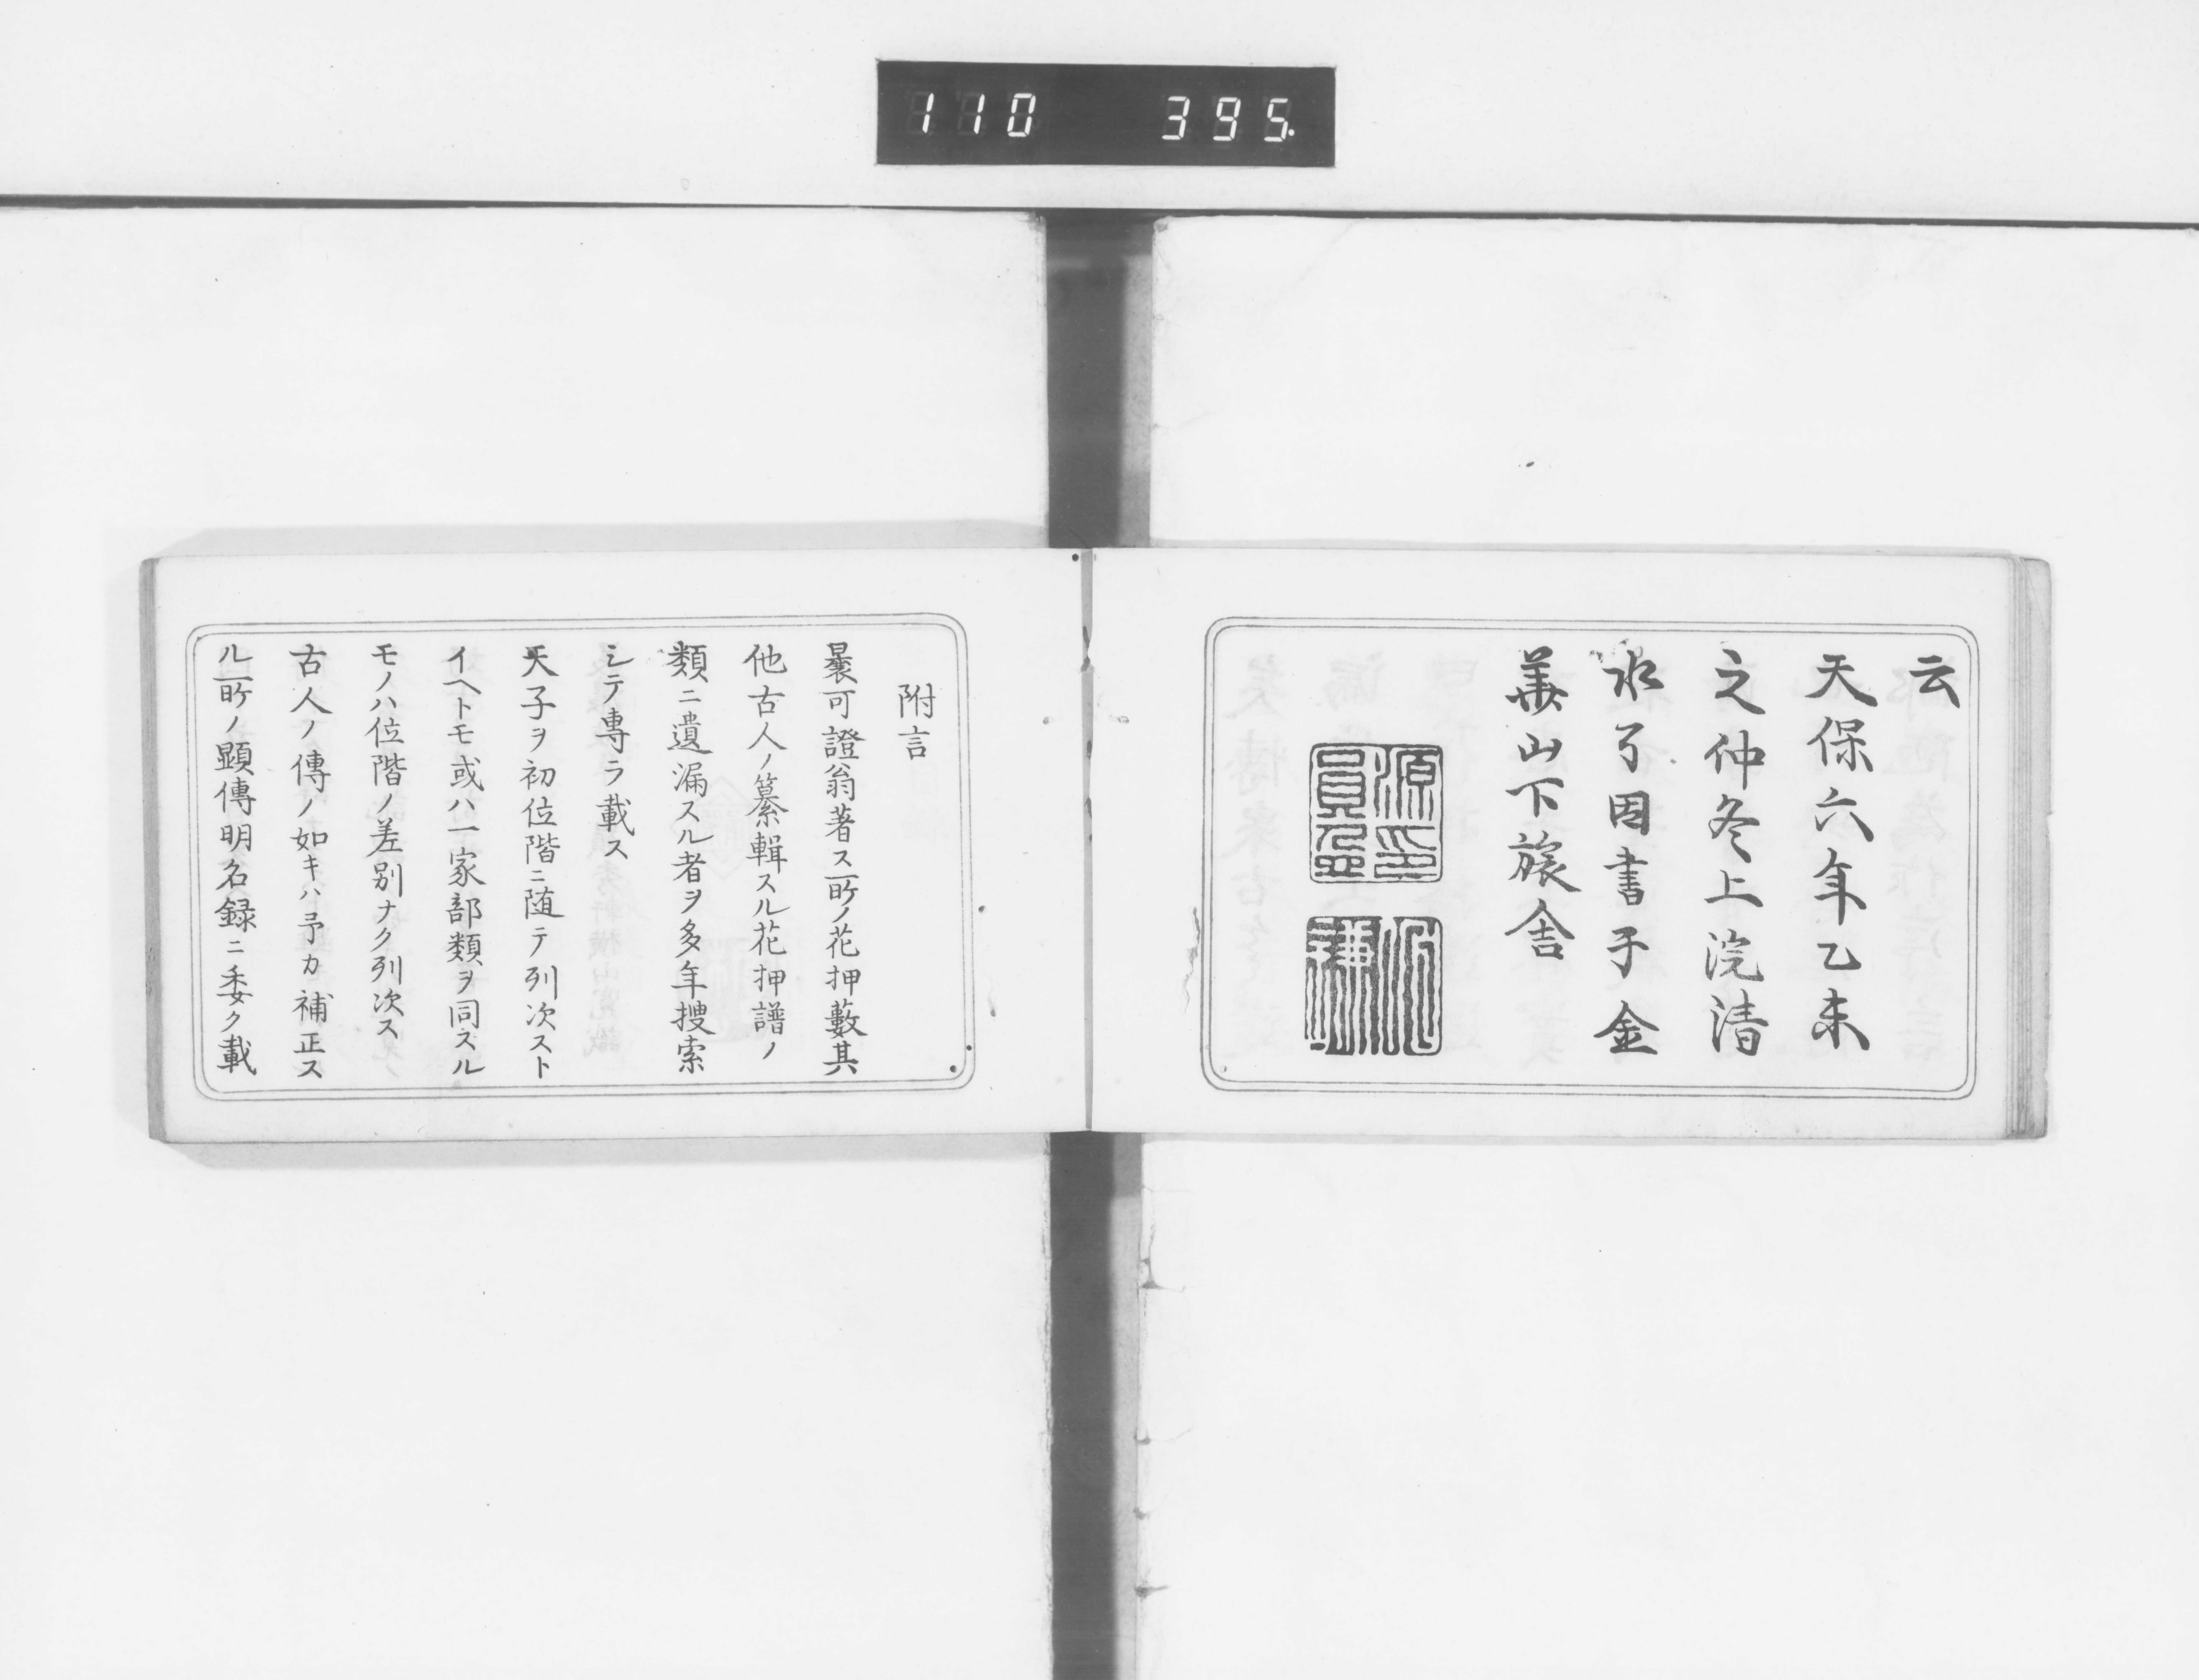 110 395.
云
天保六年乙未
之仲冬上浣清
水弓因書于金
華山下旅舎
附言
曩可證翁著ス所ノ花押藪其
他古人ノ纂輯スル花押譜ノ
類ニ遺漏スル者ヲ多年捜索
シテ専ラ載ス
天子ヲ初位階ニ随テ列次スト
イヘトモ或ハ一家部類ヲ同ズル
モノハ位階ノ差別ナク列次ス
古人ノ傳ノ如キハ予カ補正ス
ル所ノ顕傳明名録ニ委ク載